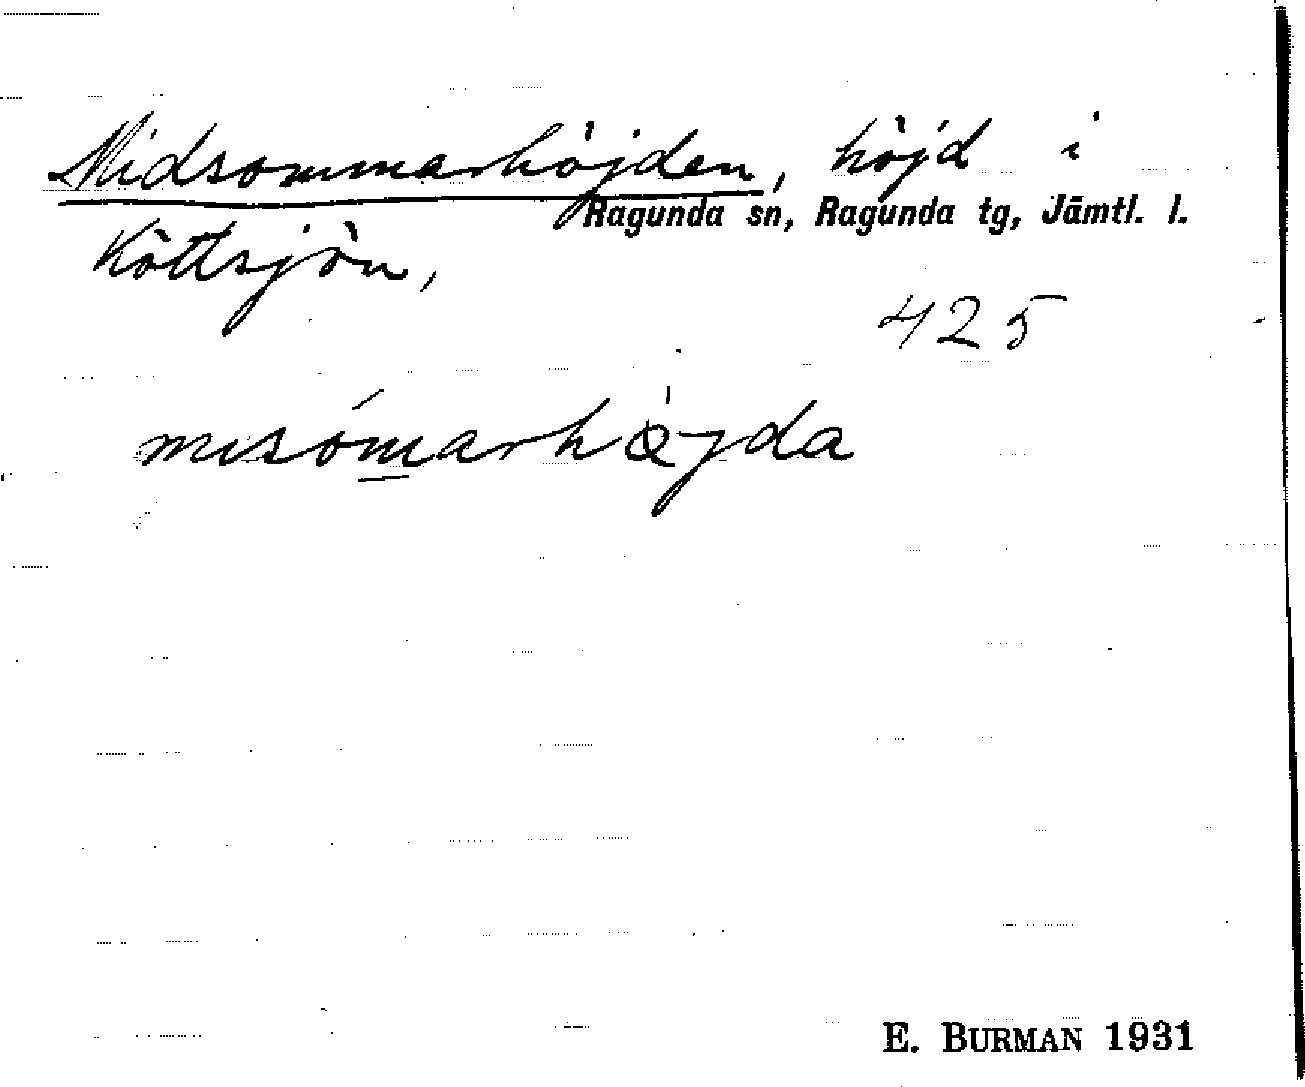 Midsommarhöjden, höjd i
Ragunda sn, Ragunda tg, Jämtl. l.
Köttsjön,
425
misómarhöjda
E. BURMAN 1931